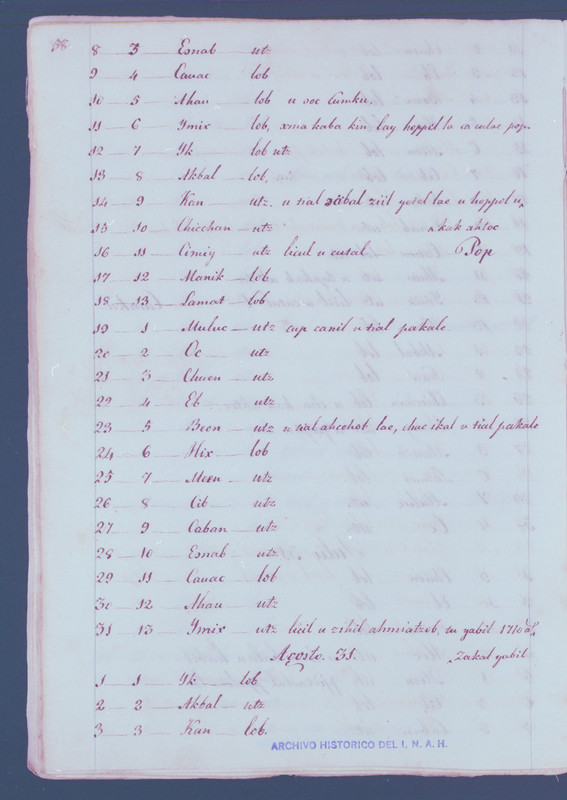 58
8 — 3 — Esnab — utz
9 — 4 — Cauac — lob
10 — 5 — Ahau — lob u voc Cumku.
11 — 6 — Ymix — lob, xma kaba kin lay hoppel la ca culac pop.
12 — 7 — Yk — lob utz
13 — 8 — Akbal — lob,
14 — 9 — Kan — utz. u sial xiibal ziil lae u hoppel u,
15 — 10 — Chicchan — utz kak ahtoc
16 — 11 — Cimiy — utz licul u cusal Pop
17 — 12 — Manik — lob
18 — 13 — Lamat — lob
19 — 1 — Muluc — utz cup canil u sial pakale
20 — 2 — Oc — utz
21 — 3 — Chuen — utz
22 — 4 — Eb — utz
23 — 5 — Been — utz u sial ahcehob lae, chac ikal u sial pakale
24 — 6 — Hix — lob
25 — 7 — Meen — utz
26 — 8 — Cib — utz
27 — 9 — Caban — utz
28 — 10 — Esnab — utz
29 — 11 — Cauac — lob
30 — 12 — Ahau — utz
31 — 13 — Ymix — utz licil u zihil ahmiatzob, tu yabil 1710 al,
Agosto. 31. Zakal yabil
1 — 1 — Yk — lob
2 — 2 — Akbal — utz
3 — 3 — Kan — lob.
ARCHIVO HISTORICO DEL I. N. A. H.